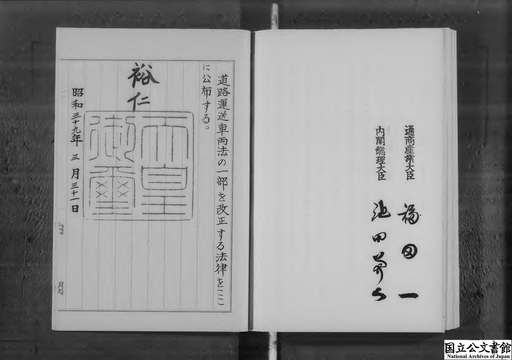 通商産業大臣 福田一
内閣総理大臣 池田勇人
道路運送車両法の一部を改正する法律をここ
に公布する。
裕仁
天皇御璽
昭和三十九年三月三十一日
国立公文書館
National Archives of Japan